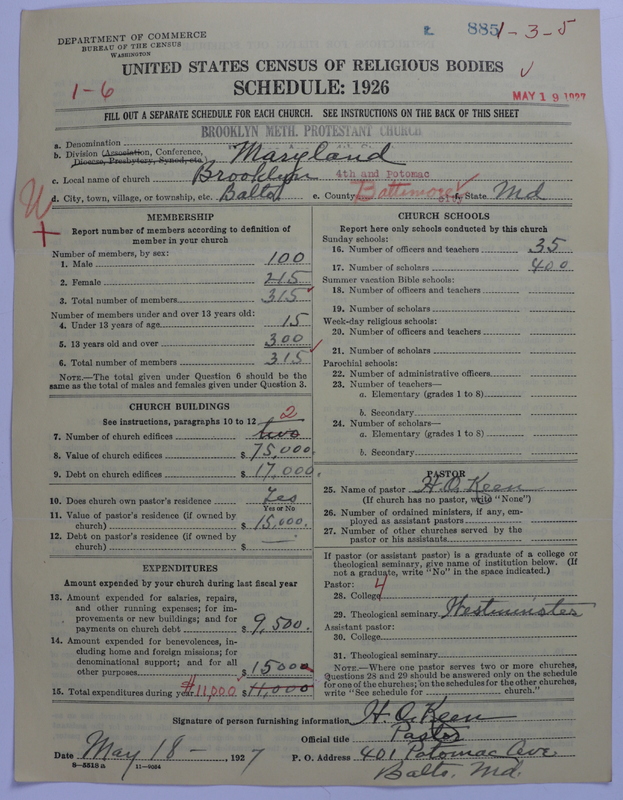 DEPARTMENT OF COMMERCE
BUREAU OF THE CENSUS
WASHINGTON
885 1-3-5
UNITED STATES CENSUS OF RELIGIOUS BODIES
1-6
SCHEDULE: 1926
MAY 19 1927
FILL OUT A SEPARATE SCHEDULE FOR EACH CHURCH. SEE INSTRUCTIONS ON THE BACK OF THIS SHEET
BROOKLYN METH. PROTESTANT CHURCH
a. Denomination
b. Division (Association, Conference, Diocese, Presbytery, Synod, etc.) Maryland
c. Local name of church Brooklyn 4th and Potomac
d. City, town, village, or township, etc. Balto e. County Baltimore City f. State Md
MEMBERSHIP
Report number of members according to definition of member in your church
Number of members, by sex:
1. Male 100
2. Female 215
3. Total number of members 315
Number of members under and over 13 years old:
4. Under 13 years of age 15
5. 13 years old and over 300
6. Total number of members 315
NOTE.—The total given under Question 6 should be the same as the total of males and females given under Question 3.
CHURCH BUILDINGS
See instructions, paragraphs 10 to 12
7. Number of church edifices two 2
8. Value of church edifices $ 75,000.
9. Debt on church edifices $ 17,000.
10. Does church own pastor's residence Yes
Yes or No
11. Value of pastor's residence (if owned by church) $ 15,000.
12. Debt on pastor's residence (if owned by church) $
EXPENDITURES
Amount expended by your church during last fiscal year
13. Amount expended for salaries, repairs, and other running expenses; for improvements or new buildings; and for payments on church debt $ 9,500.
14. Amount expended for benevolences, including home and foreign missions; for denominational support; and for all other purposes $ 1500
15. Total expenditures during year $11,000. $ 11,000
CHURCH SCHOOLS
Report here only schools conducted by this church
Sunday schools:
16. Number of officers and teachers 35
17. Number of scholars 400
Summer vacation Bible schools:
18. Number of officers and teachers
19. Number of scholars
Week-day religious schools:
20. Number of officers and teachers
21. Number of scholars
Parochial schools:
22. Number of administrative officers
23. Number of teachers—
a. Elementary (grades 1 to 8)
b. Secondary
24. Number of scholars—
a. Elementary (grades 1 to 8)
b. Secondary
PASTOR
25. Name of pastor H. O. Keen
(If church has no pastor, write "None")
26. Number of ordained ministers, if any, employed as assistant pastors
27. Number of other churches served by the pastor or his assistants
If pastor (or assistant pastor) is a graduate of a college or theological seminary, give name of institution below. (If not a graduate, write "No" in the space indicated.)
Pastor:
28. College 4
29. Theological seminary Westminster
Assistant pastor:
30. College
31. Theological seminary
NOTE.—Where one pastor serves two or more churches, Questions 28 and 29 should be answered only on the schedule for one of the churches; on the schedules for the other churches, write "See schedule for church."
Signature of person furnishing information H. O. Keen
Official title Pastor
Date May 18 - , 1927 P. O. Address 401 Potomac Ave
8—5518 a 11—9054
Balto. Md.